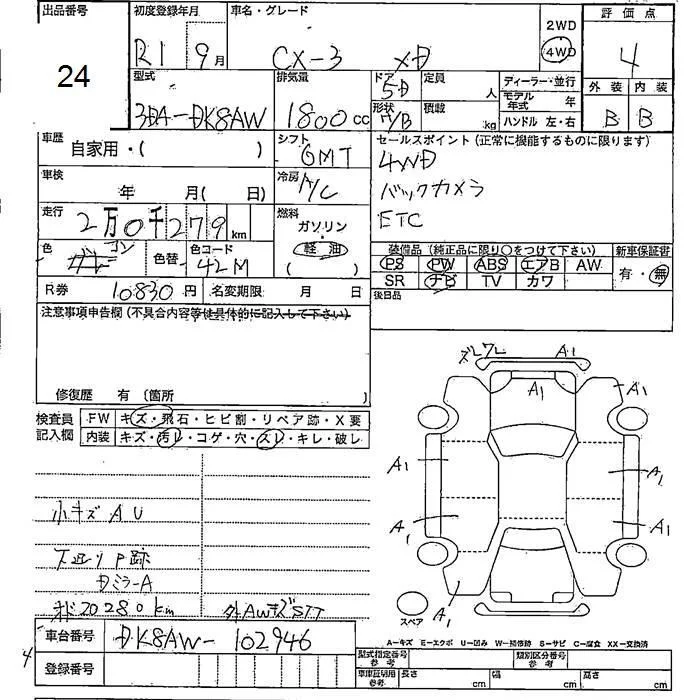 出品番号
24
初度登録年月
R1 9月
車名・グレード
CX-3 XD
2WD
4WD
評価点
4
外装 内装
B B
型式
3DA-DK8AW
排気量
1800cc
ドア
5D
形状
定員 人
積載 kg
ディーラー・並行
モデル年式 年
ハンドル 左・右
車歴
自家用・( )
シフト
6MT
セールスポイント(正常に機能するものに限ります)
4WD
バックカメラ
ETC
車検
年 月(日)
冷房
A/C
走行
2万0千279km
燃料
ガソリン
軽油
( )
色
コン
色替
色コード
42M
装備品(純正品に限り○をつけて下さい)
PS PW ABS エアB AW
SR ナビ TV カワ
新車保証書
有・無
R券 10830円
名変期限 月 日
後日品
注意事項申告欄(不具合内容等は具体的に記入して下さい)
修復歴 有 〔箇所 〕
検査員記入欄
FW キズ・飛石・ヒビ割・リペア跡・X要
内装 キズ・汚レ・コゲ・穴・スレ・キレ・破レ
小キズ A U
下廻りP跡
Dミラ-A
20280km
外AWキズSTT
ズレワレ A1
A1
A1
A1
A1
A1
A1
A1
スペア
A-キズ E-エクボ U-凹み W-補修跡 S-サビ C-腐食 XX-交換済
車台番号
DK8AW-102946
登録番号
4
型式指定番号 参考
類別区分番号 参考
車車証明用 参考
長さ cm
幅 cm
高さ cm